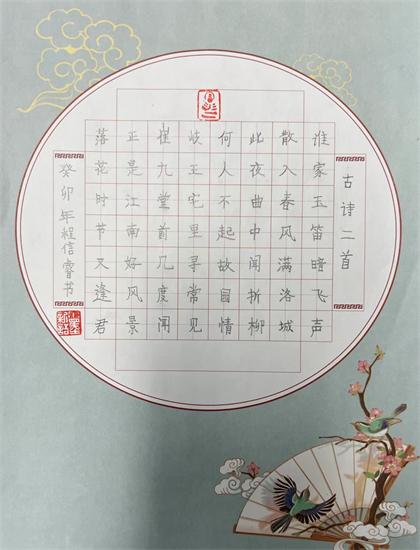 古诗二首
谁家玉笛暗飞声
散入春风满洛城
此夜曲中闻折柳
何人不起故园情
岐王宅里寻常见
崔九堂首几度闻
正是江南好风景
落花时节又逢君
癸卯年程信睿书